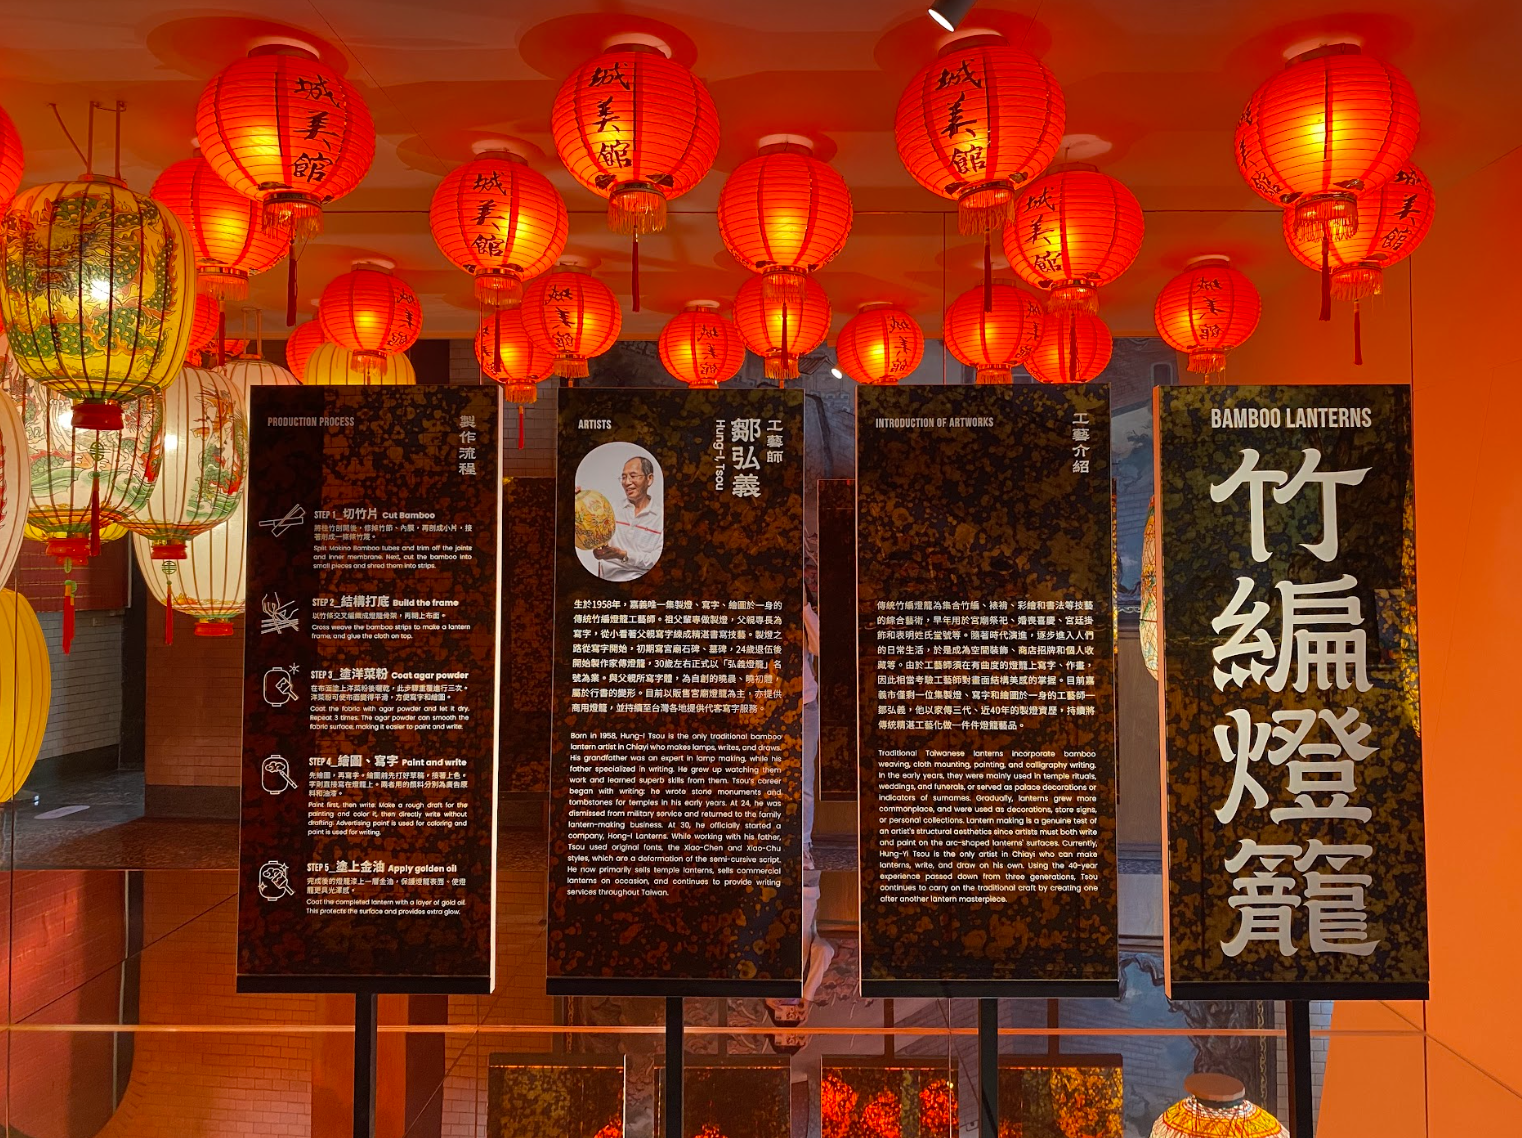 城美館
城美館
城美館
城美館
城美館
城美館
PRODUCTION PROCESS
製作流程
STEP 1_切竹片 Cut Bamboo
將桂竹剖開後，修掉竹節、內膜，再剖成小片，接
著削成一條條竹篾。
Split Makino Bamboo tubes and trim off the joints
and inner membrane. Next, cut the bamboo into
small pieces and shred them into strips.
STEP 2_結構打底 Build the frame
以竹條交叉編織成燈籠骨架，再糊上布面。
Cross weave the bamboo strips to make a lantern
frame, and glue the cloth on top.
STEP 3_塗洋菜粉 Coat agar powder
在布面塗上洋菜粉後曬乾，此步驟重覆進行三次。
洋菜粉可使布面變得平滑，方便寫字和繪圖。
Coat the fabric with agar powder and let it dry.
Repeat 3 times. The agar powder can smooth the
fabric surface, making it easier to paint and write.
STEP 4_繪圖、寫字 Paint and write
先繪圖，再寫字。繪圖前先打好草稿，接著上色。
字則直接寫在燈籠上。兩者用的顏料分別為廣告顏
料和油漆。
Paint first, then write. Make a rough draft for the
painting and color it, then directly write without
drafting. Advertising paint is used for coloring and
paint is used for writing.
STEP 5_塗上金油 Apply golden oil
完成後的燈籠漆上一層金油，保護燈籠表面、使燈
籠更具光澤感。
Coat the completed lantern with a layer of gold oil.
This protects the surface and provides extra glow.
ARTISTS
工藝師
鄒弘義
Hung-I, Tsou
生於1958年，嘉義唯一集製燈、寫字、繪圖於一身的
傳統竹編燈籠工藝師。祖父輩專做製燈，父親專長為
寫字，從小看著父親寫字練成精湛書寫技藝。製燈之
路從寫字開始，初期寫宮廟石碑、墓碑，24歲退伍後
開始製作家傳燈籠，30歲左右正式以「弘義燈籠」名
號為業。與父親所寫字體，為自創的曉晨、曉初體，
屬於行書的變形。目前以販售宮廟燈籠為主，亦提供
商用燈籠，並持續至台灣各地提供代客寫字服務。
Born in 1958, Hung-I Tsou is the only traditional bamboo
lantern artist in Chiayi who makes lamps, writes, and draws.
His grandfather was an expert in lamp making, while his
father specialized in writing. He grew up watching them
work and learned superb skills from them. Tsou's career
began with writing; he wrote stone monuments and
tombstones for temples in his early years. At 24, he was
dismissed from military service and returned to the family
lantern-making business. At 30, he officially started a
company, Hong-I Lanterns. While working with his father,
Tsou used original fonts, the Xiao-Chen and Xiao-Chu
styles, which are a deformation of the semi-cursive script.
He now primarily sells temple lanterns, sells commercial
lanterns on occasion, and continues to provide writing
services throughout Taiwan.
INTRODUCTION OF ARTWORKS
工藝介紹
傳統竹編燈籠為集合竹編、裱褙、彩繪和書法等技藝
的綜合藝術，早年用於宮廟祭祀、婚喪喜慶、宮廷掛
飾和表明姓氏堂號等。隨著時代演進，逐步進入人們
的日常生活，於是成為空間裝飾、商店招牌和個人收
藏等。由於工藝師須在有曲度的燈籠上寫字、作畫，
因此相當考驗工藝師對畫面結構美感的掌握。目前嘉
義市僅剩一位集製燈、寫字和繪圖於一身的工藝師—
鄒弘義，他以家傳三代、近40年的製燈資歷，持續將
傳統精湛工藝化做一件件燈籠藝品。
Traditional Taiwanese lanterns incorporate bamboo
weaving, cloth mounting, painting, and calligraphy writing.
In the early years, they were mainly used in temple rituals,
weddings, and funerals, or served as palace decorations or
indicators of surnames. Gradually, lanterns grew more
commonplace, and were used as decorations, store signs,
or personal collections. Lantern making is a genuine test of
an artist's structural aesthetics since artists must both write
and paint on the arc-shaped lanterns' surfaces. Currently,
Hung-Yi Tsou is the only artist in Chiayi who can make
lanterns, write, and draw on his own. Using the 40-year
experience passed down from three generations, Tsou
continues to carry on the traditional craft by creating one
after another lantern masterpiece.
BAMBOO LANTERNS
竹編燈籠